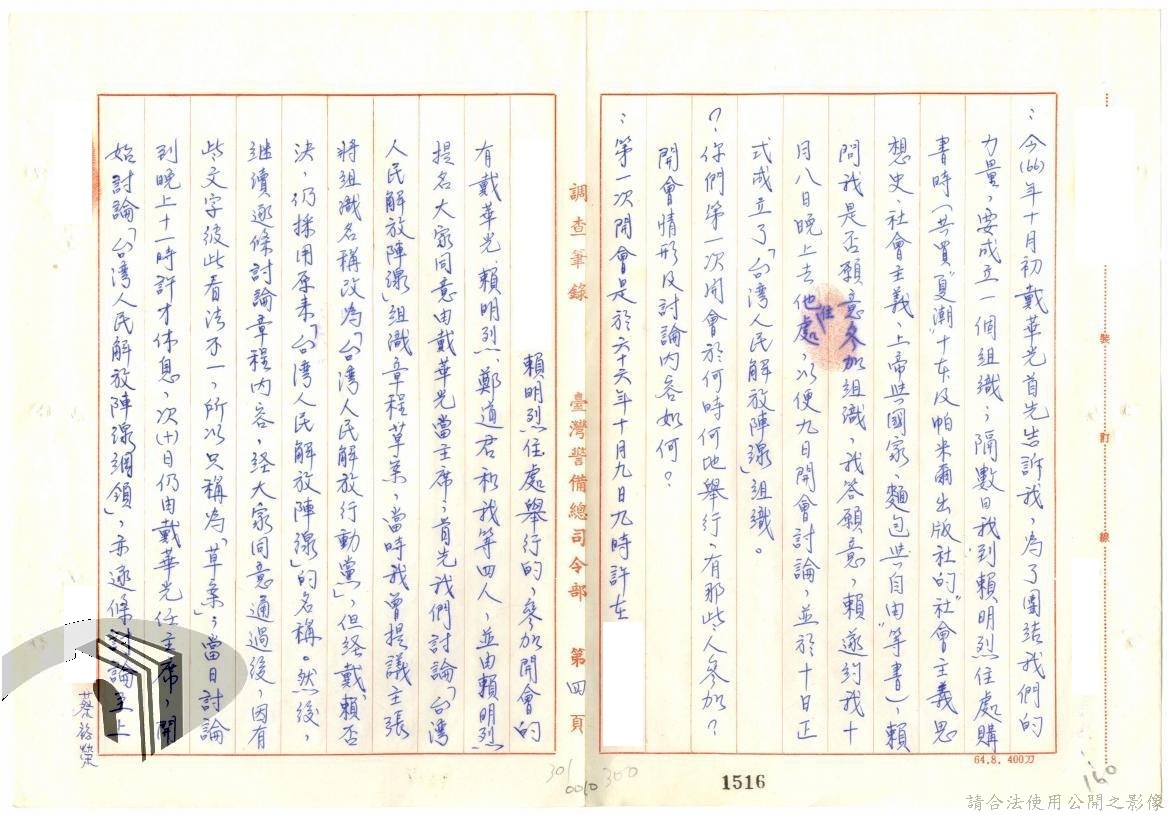 ：今(66)年十月初戴華光首先告訴我，為了團結我們的
力量，要成立一個組織；隔數日我到賴明烈住處購
書時(共買"夏潮十本及帕米爾出版社的"社會主義思
想史、社會主義、上帝與國家、麵包與自由"等書)，賴
問我是否願意參加組織，我答願意，賴遂約我十
月八日晚上去他住處，以便九日開會討論，並於十日正
式成立了「台湾人民解放陣線」組織。
？：你們第一次開會於何時何地舉行，有那些人參加？
開會情形及討論內容如何？
：第一次開會是於六十六年十月九日九時許在
調查筆錄 臺灣警備總司令部 第四頁
賴明烈住處舉行的，參加開會的
有戴華光、賴明烈、鄭道君和我等四人，並由賴明烈
提名大家同意由戴華光當主席，首先我們討論「台湾
人民解放陣線」組織章程草案，當時我曾提議主張
將組織名稱改為「台湾人民解放行動黨」，但经戴、賴否
決，仍採用原来「台湾人民解放陣線」的名稱。然後，
继續逐條討論章程内容，经大家同意通過後，因有
些文字彼此看法不一，所以只稱為「草案」，當日討論
到晚上十一時許才休息，次(十)日仍由戴華光任主席，開
始討論「台湾人民解放陣線綱領」，亦逐條討論至上
蔡裕榮
裝 訂 線
64.8. 400刀
301
0010
300
1516
160
請合法使用公開之影像